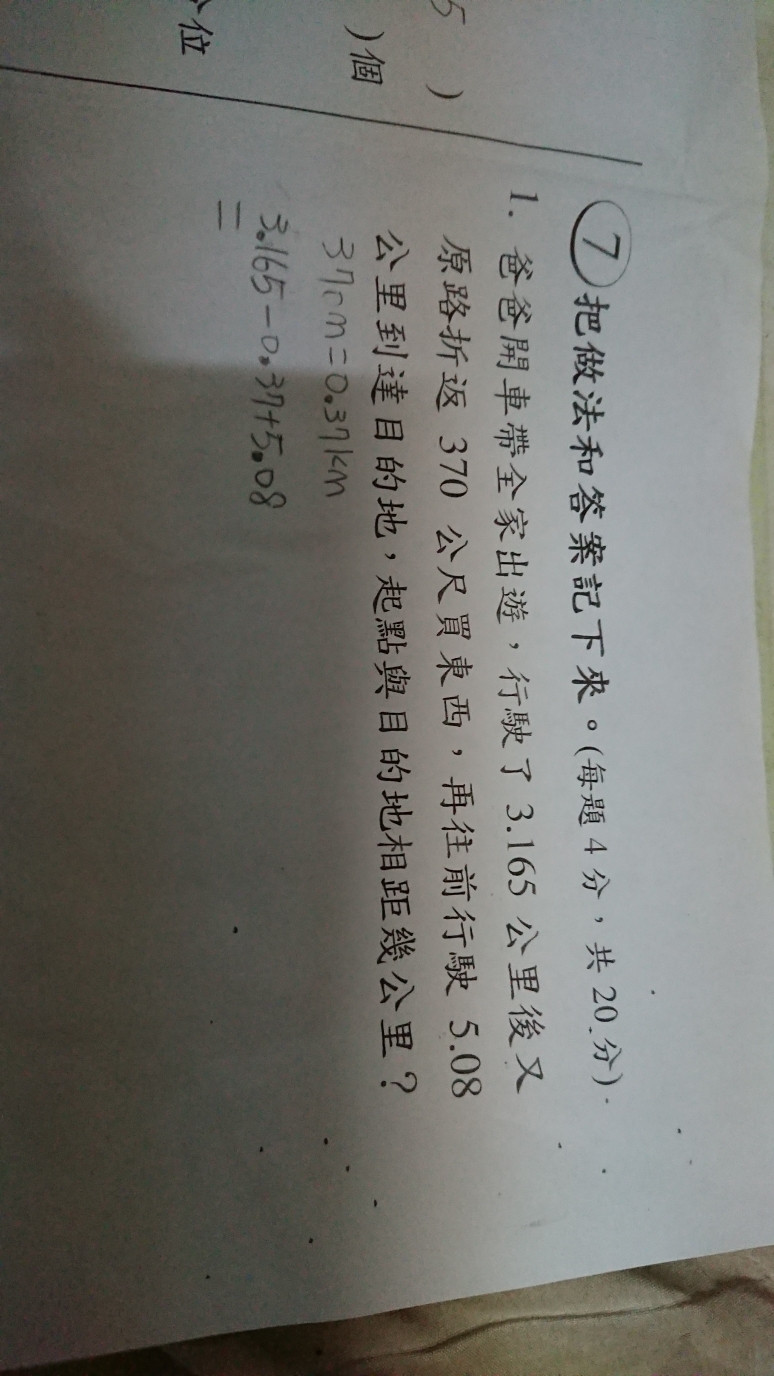 5 )
)個
位
7 把做法和答案記下來。(每題 4 分，共 20 分)
1. 爸爸開車帶全家出遊，行駛了 3.165 公里後又
原路折返 370 公尺買東西，再往前行駛 5.08
公里到達目的地，起點與目的地相距幾公里？
370m=0.37km
3.165-0.37+5.08
=